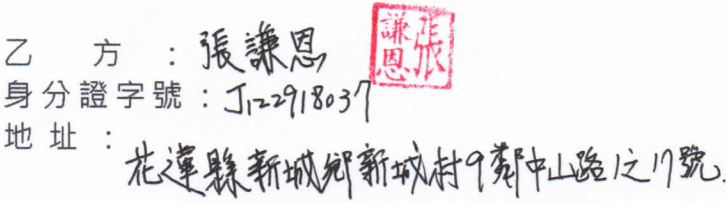 乙方：張謙恩 張謙恩
身分證字號：J122918037
地址：
花蓮縣新城鄉新城村9鄰中山路1之17號.